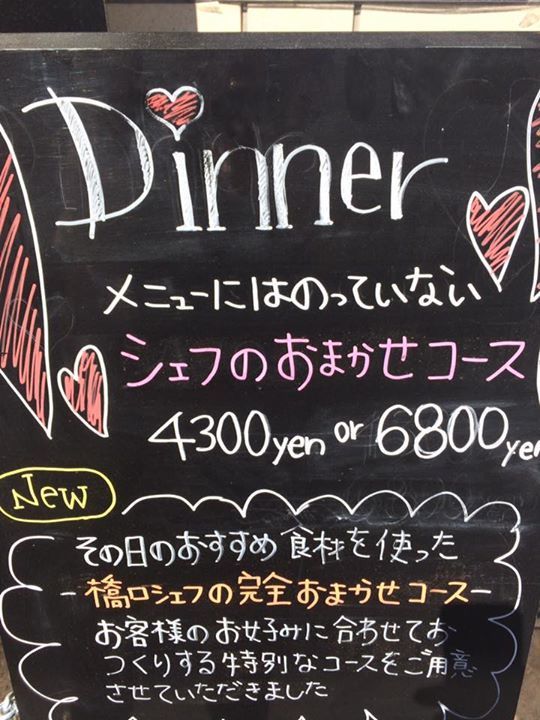 Dinner
メニューにはのっていない
シェフのおまかせコース
4300yen or 6800yen
New
その日のおすすめ食材を使った
-橋口シェフの完全おまかせコース-
お客様のお好みに合わせてお
つくりする特別なコースをご用意
させていただきました